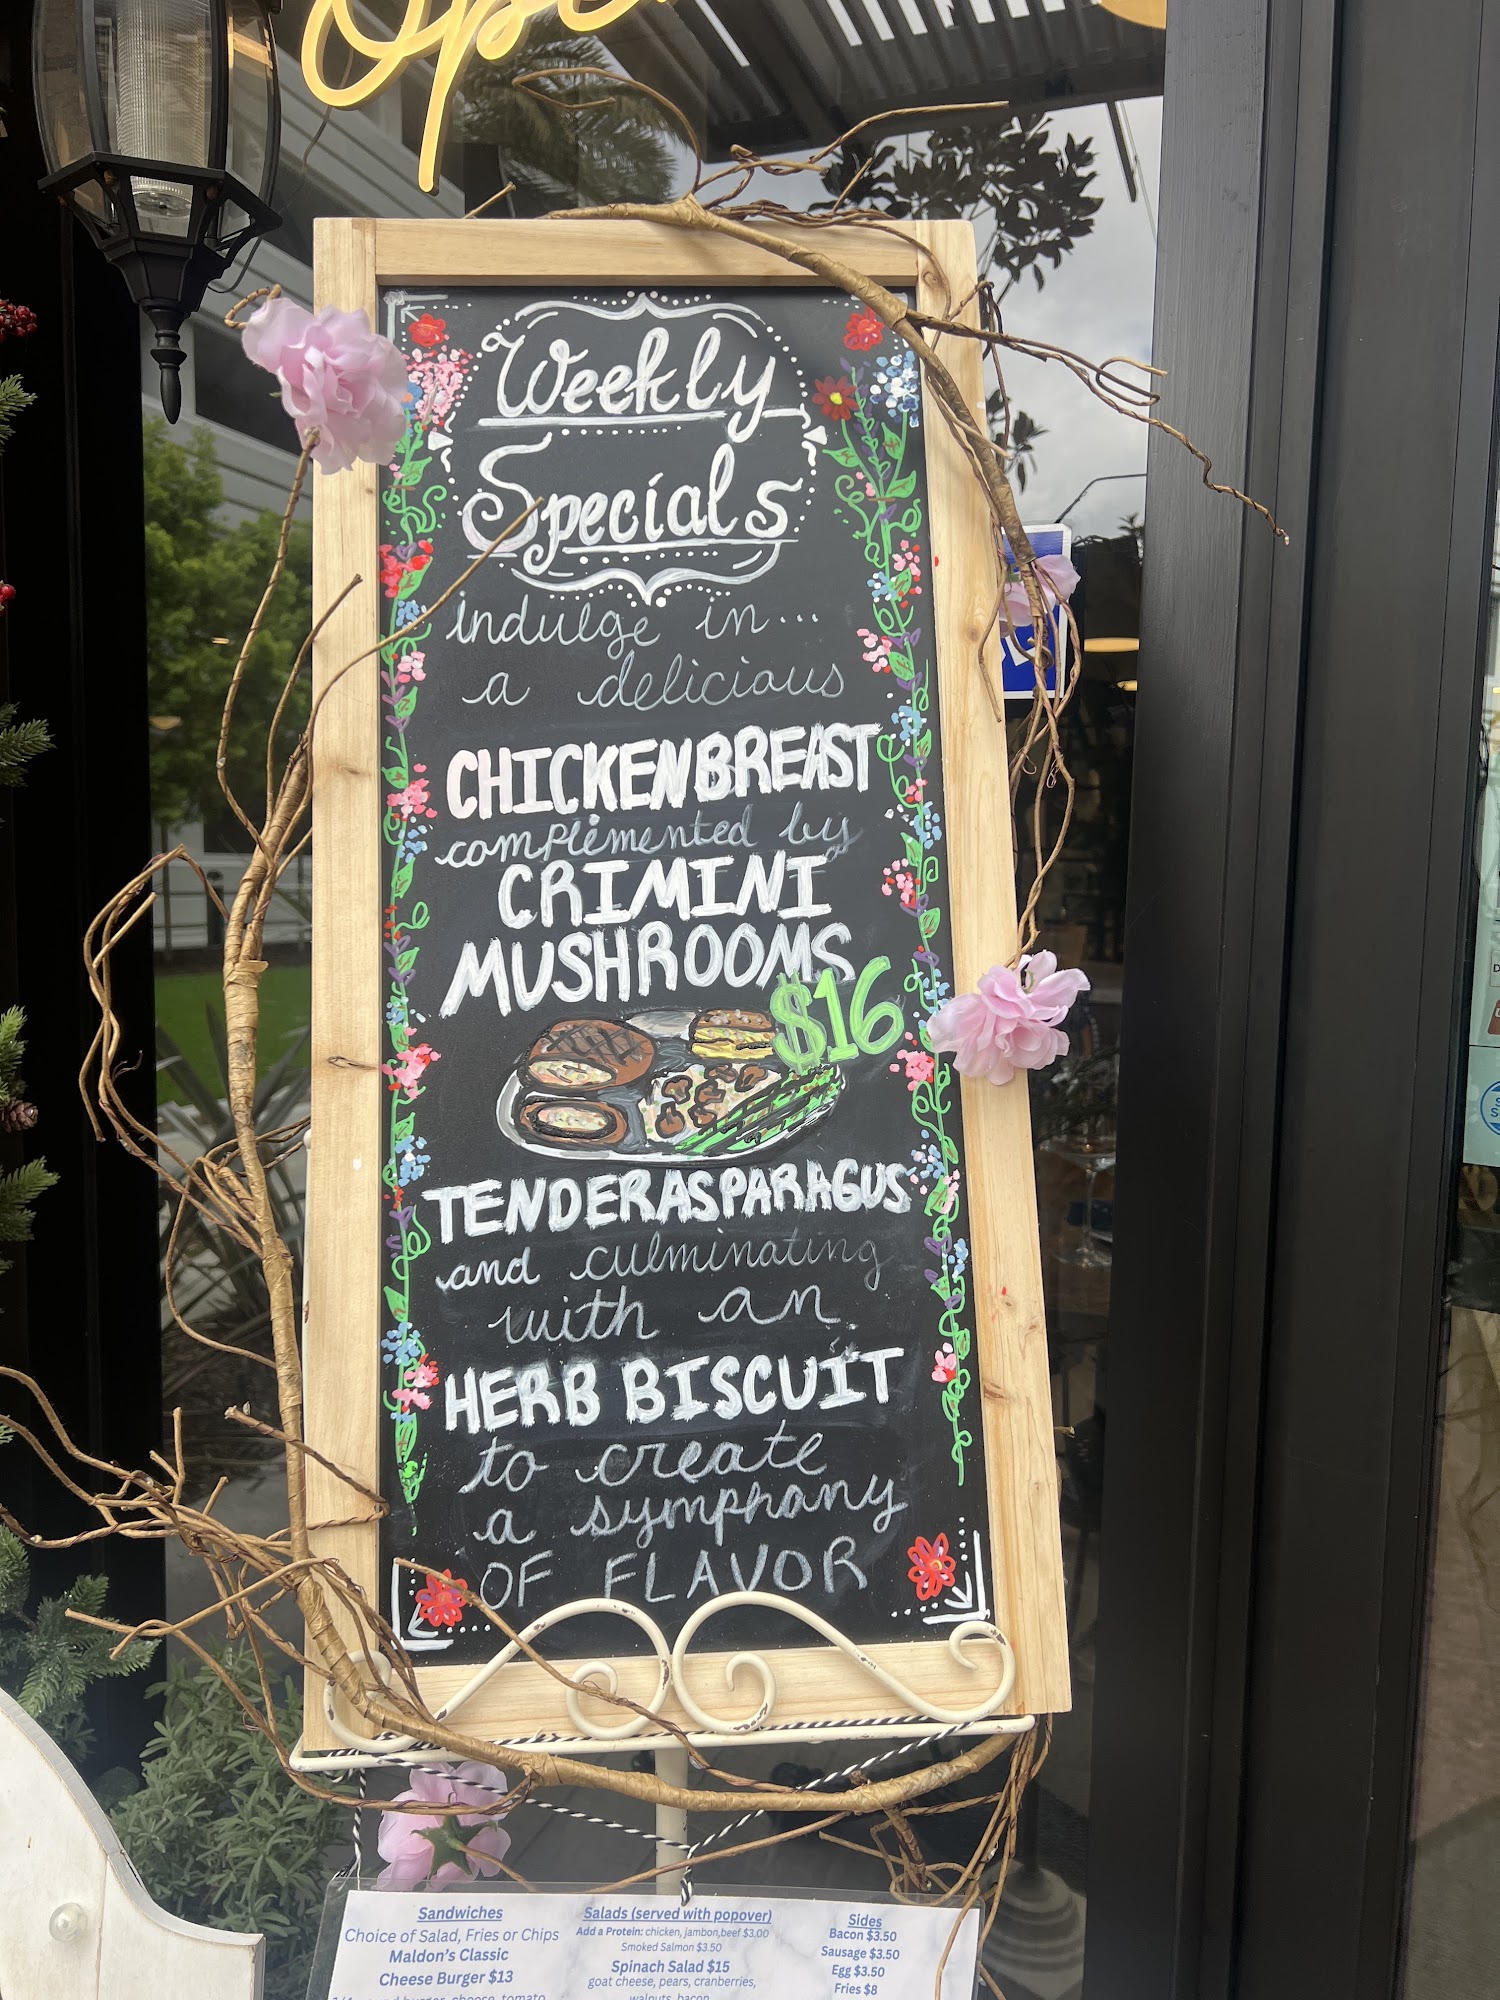 Open
Weekly
Specials
indulge in...
a delicious
CHICKEN BREAST
complemented by
CRIMINI
MUSHROOMS
$16
TENDER ASPARAGUS
and culminating
with an
HERB BISCUIT
to create
a symphony
OF FLAVOR
Sandwiches
Choice of Salad, Fries or Chips
Maldon's Classic
Cheese Burger $13
burger, cheese, tomato
Salads (served with popover)
Add a Protein: chicken, jambon,beef $3.00
Smoked Salmon $3.50
Spinach Salad $15
goat cheese, pears, cranberries,
walnuts, bacon
Sides
Bacon $3.50
Sausage $3.50
Egg $3.50
Fries $8